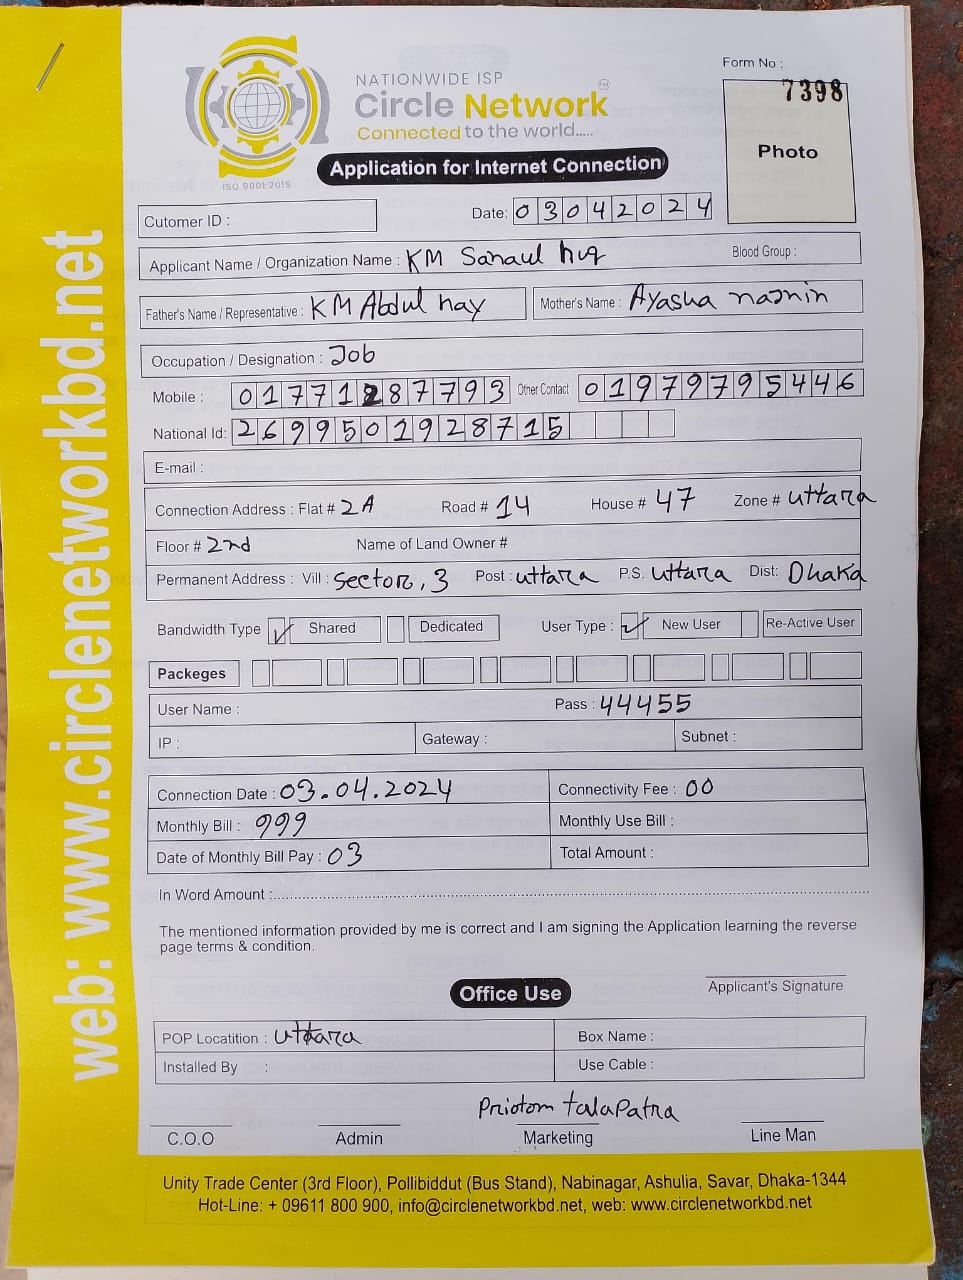 web: www.circlenetworkbd.net
NATIONWIDE ISP
Circle Network TM
Connected to the world.....
ISO 9001:2015
Application for Internet Connection
Form No :
7398
Photo
Cutomer ID :
Date: 03042024
Applicant Name / Organization Name : KM Sanaul huq Blood Group :
Father's Name / Representative : KM Abdul hay Mother's Name : Ayasha nasnin
Occupation / Designation : Job
Mobile : 01771287793 Other Contact : 01979795446
National Id: 2699501928715
E-mail :
Connection Address : Flat # 2A Road # 14 House # 47 Zone # uttara
Floor # 2nd Name of Land Owner #
Permanent Address : Vill : Sector, 3 Post : uttara P.S. uttara Dist: Dhaka
Bandwidth Type ✓ Shared Dedicated User Type : ✓ New User Re-Active User
Packeges
User Name : Pass : 44455
IP : Gateway : Subnet :
Connection Date : 03.04.2024 Connectivity Fee : 00
Monthly Bill : 999 Monthly Use Bill :
Date of Monthly Bill Pay : 03 Total Amount :
In Word Amount :
The mentioned information provided by me is correct and I am signing the Application learning the reverse
page terms & condition.
Applicant's Signature
Office Use
POP Locatition : uttara Box Name :
Installed By : Use Cable :
Priotom talapatra
C.O.O Admin Marketing Line Man
Unity Trade Center (3rd Floor), Pollibiddut (Bus Stand), Nabinagar, Ashulia, Savar, Dhaka-1344
Hot-Line: + 09611 800 900, info@circlenetworkbd.net, web: www.circlenetworkbd.net